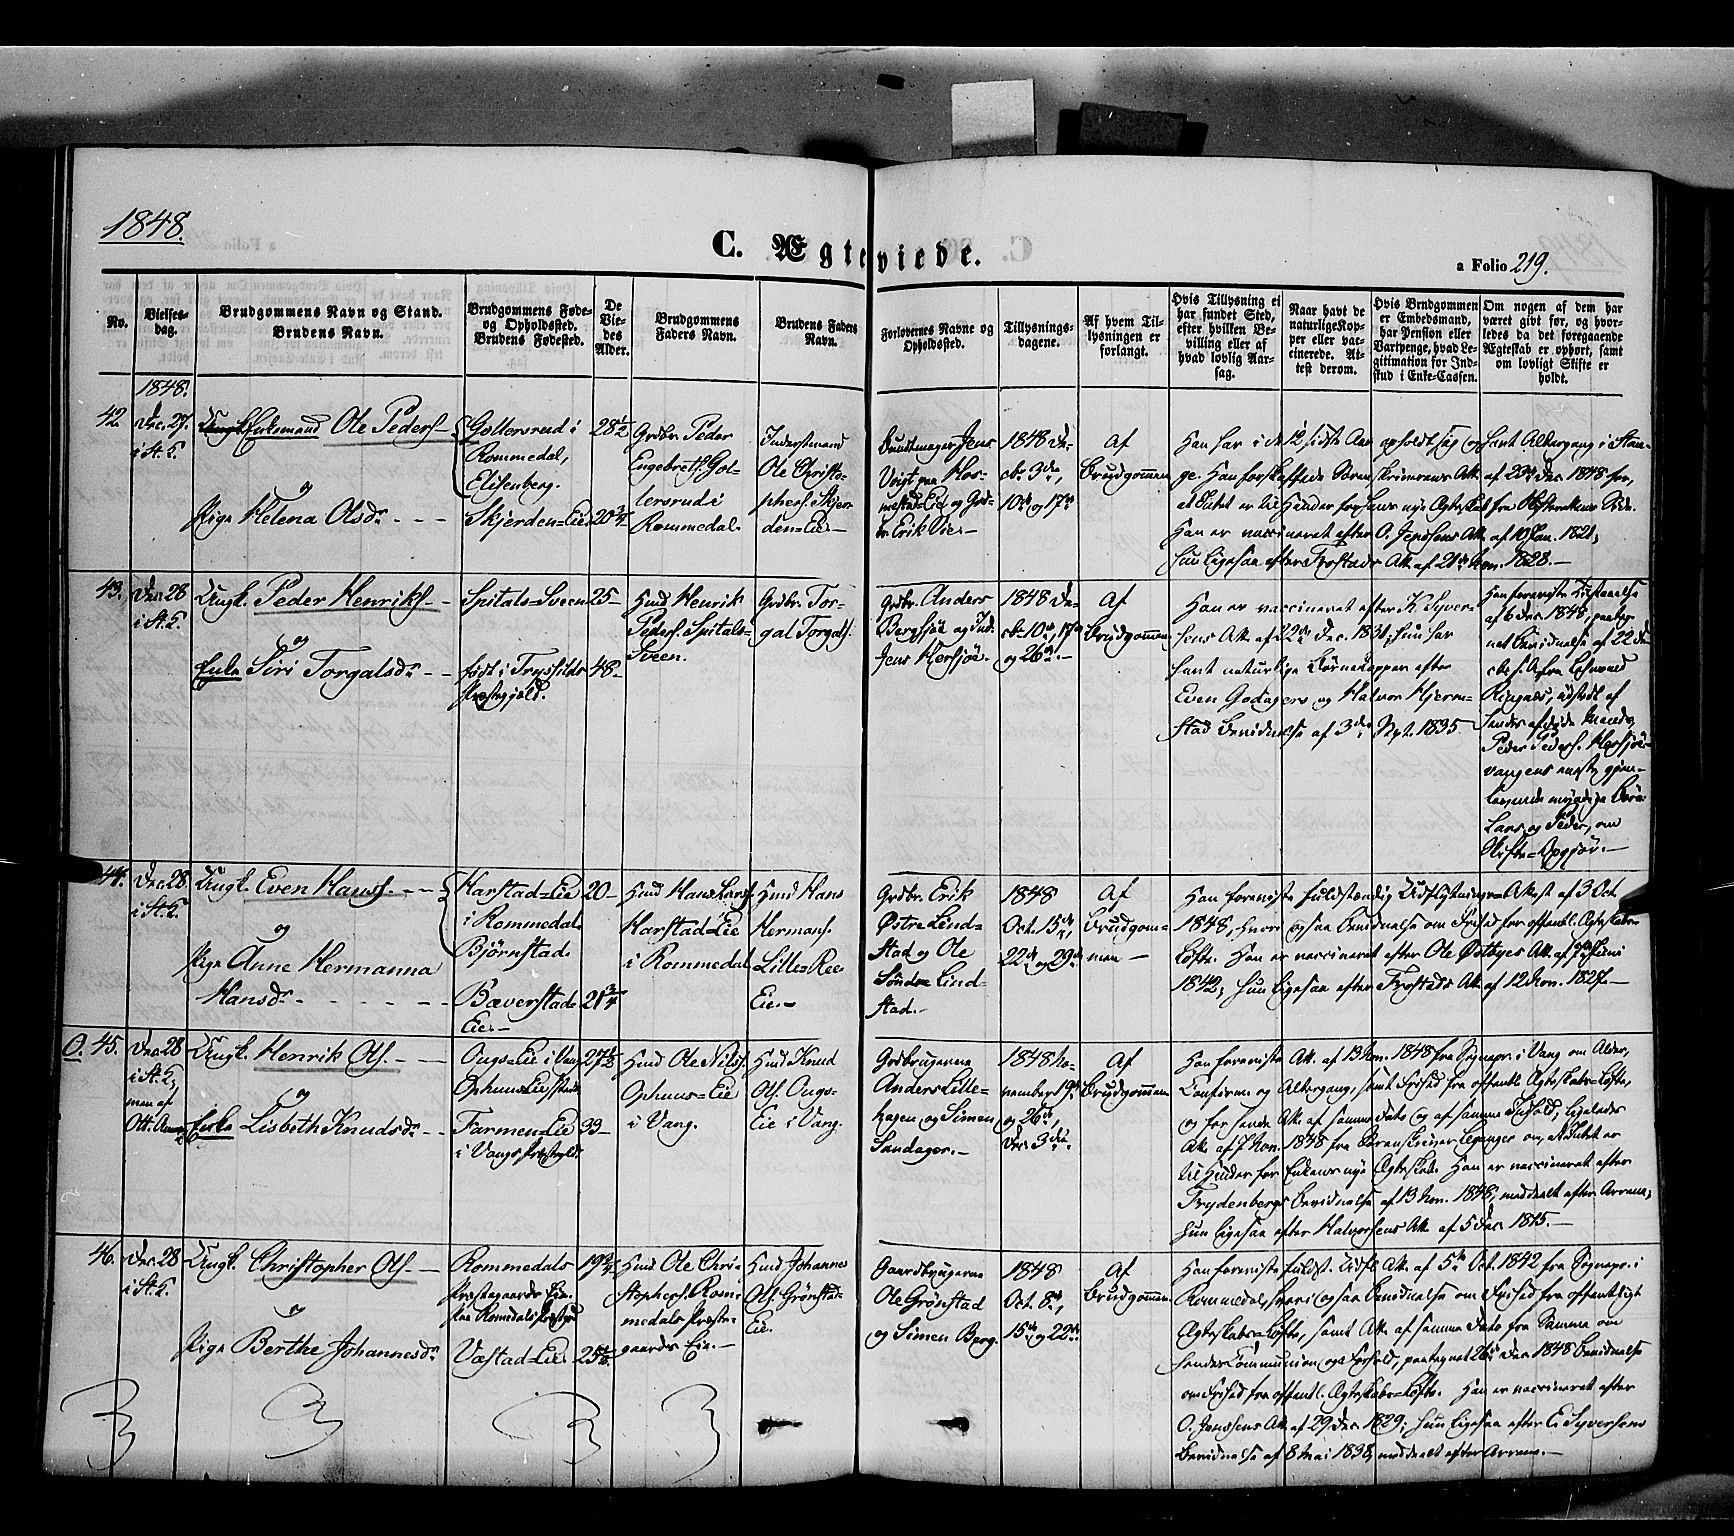 1848.
C. Ægteviede.
a Folio 219.
No.
Vielses-
dag.
Brudgommens Navn og Stand.
Brudens Navn.
Brudgommens Føde-
og Opholdssted.
Brudens Fødested.
De
Vie-
des
Alder.
Brudgommens
Faders Navn.
Brudens Faders
Navn.
Forlovernes Navne og
Opholdssted.
Tillysnings-
dagene.
Af hvem Til-
lysningen er
forlangt.
Hvis Tillysning ei
har fundet Sted,
efter hvilken Be-
villing eller af
hvad lovlig Aar-
sag.
Naar havt de
naturlige Kop-
per eller vac-
cinerede. At-
test derom.
Hvis Brudgommen
er Embedsmand,
har Pension eller
Vartpenge, hvad Le-
gitimation for Ind-
skud i Enke-Cassen.
Om nogen af dem har
været gift før, og hvor-
ledes da det foregaaende
Ægteskab er ophørt, samt
om lovligt Skifte er
holdt.
1848.
42.
Dec. 27.
i St. K.
Enkemand Ole Peders.
og
Pige Helena Olsdr
Gollersrud i
Rommedal,
Elisenberg.
Skjerden-Eie
28 1/2
20 3/4
Grdbr. Peder
Engebrets. Gol-
lersrud i
Rommedal.
Inderstmand
Ole Christo-
phers. Skjer-
den-Eie.
Jens
Voigt paa Hos-
mestad-Eie og Grd-
br. Erik Vie.
1848 De-
cbr 3de,
10de og 17de
Af
Brudgommen
Han har i de 12 sidste Aar opholdt sig og havt Altergang i Stan-
ge. Han forskaffede Sorenskriverens Att. af 23de Dec. 1848 for,
at Intet er til Hinder for hans nye Ægteskab fra Skifterettens Side.
Han er vaccineret efter O. Jenssens Att. af 10 Jan. 1821;
hun ligesaa efter Frostads Att. af 21de Nov. 1828.
43.
Dec. 28
i St. K.
Ungk. Peder Henriks.
og
Enke Siri Torgalsdr
Spitals-Sveen
født i Trysilds
Præstegjæld.
25
48
Husmd Henrik
Peders. Spitals-
Sveen.
Grdbr. Tor-
gal Torgals.
Grdbr. Anders
Bergsjøe og Ind.
Jens Horsjøe.
1848 De-
cbr 10de, 17de
og 26de.
Af
Brudgommen
Han er vaccineret efter K. Syver-
sens Att. af 22de Dec. 1831; hun har
havt naturlige Børnekopper efter
Even Godagers og Halvor Hjerm-
stad Bevidnelse af 3de Sept. 1835
Han foreviste Tilstaaelse
af 6 Dec. 1848, paateg-
net Bevidnelse af 22 De-
cbr s. A. fra Lehnsmd
Ringnæs, udstedt af
hendes afdøde Mands,
Peder Peders. Horsjøe-
vangens eneste gjen-
levende myndige Børn
Lars og Peder, om
Skifte-Opgjør.
44.
Dec. 28
i St. K.
Ungk. Even Hans.
og
Pige Anne Hermanna
Hansdr
Harstad-Eie
i Rommedal
Bjørnstad
Bæverstad-
Eie.
20
21 3/4
Husmd Hans Lars.
Harstad-Eie
i Rommedal
Husmd Hans
Hermans.
Lille-Ree-
Eie.
Grdbr. Erik
Østre Lind-
stad og Ole
Søndre Lind-
stad.
1848
Oct. 15de,
22de og 29de
Af
Brudgom-
men
Han foreviste fuldstændig Udflytnings-Attest af 3 Oct.
1848, hvori ogsaa Bevidnelse om Frihed for offentl. Ægteskabs-
Løfte. Han er vaccineret efter Ole Østbyes Att. af 7de Juni
1842; hun ligesaa efter Frostads Att. af 12 Nov. 1827.
O. 45.
Dec. 28
i St. K.
men af
Ott. Ann.
Ungk. Henrik Ols.
og
Enke Lisbeth Knudsdr
Ougs-Eie i Vang
Ophuus-Eie
Farmen-Eie
i Vangs Præstegjeld.
27 1/2
33
Husmd Ole Nils.
Ophuus-Eie
i Vang.
Husmd Knud
Ols. Ougs-
Eie i Vang.
Gaardbrugerne
Anders Lille-
hagen og Simen
Sandager.
1848 No-
vember 19de
og 26de,
Dec. 3die.
Af
Brudgommen
Han foreviste Att. af 13 Nov. 1848 fra Sognepr. i Vang om Alder,
Confirm. og Altergang, samt Frihed fra offentl. Ægteskabs-Løfte,
og for hende Att. af samme Dato og af samme Indhold, ligeledes
Att. af 7 Nov. 1848 fra Sorenskriver om, at Intet er
til Hinder for Enkens nye Ægteskab. Han er vaccineret efter
Frydenbergs Bevidnelse af 13 Nov. 1848, meddeelt efter
hun ligesaa efter Halvorsens Att. af 5 Dec. 1815.
46.
Dec. 28
i St. K.
Ungk. Christopher Ols.
og
Pige Berthe Johannesdr
Rommedals
Præstegaards Eie.
paa Romedals Præstegd
Væstad-Eie
19 3/4
25 1/2
Husmd Ole Chri-
stophers. Rom-
medals Præste-
gaards Eie.
Husmd Johannes
Ols. Grønstad-
Eie.
Gaardbrugerne
Ole Grønstad
og Simen Berg.
1848
Oct. 8de,
15de og 22de.
Af
Brudgommen
Han foreviste fuldst. Udfl. Att. af 5te Oct. 1842 fra Sognepr. i
Rommedal, hvori ogsaa Bevidnelse om Frihed fra offentligt
Ægteskabs-Løfte, samt Att. af samme Dato fra Samme om
hendes Communion og Forhold, paategnet 26de Dec. 1848 Bevidnelse
om Frihed fra offentl. Ægteskabs-Løfte. Han er vaccineret efter
O. Jenssens Att. af 29 Dec. 1829; hun ligesaa efter E. Syversens
Bevidnelse af 8 Mai 1838, meddeelt efter